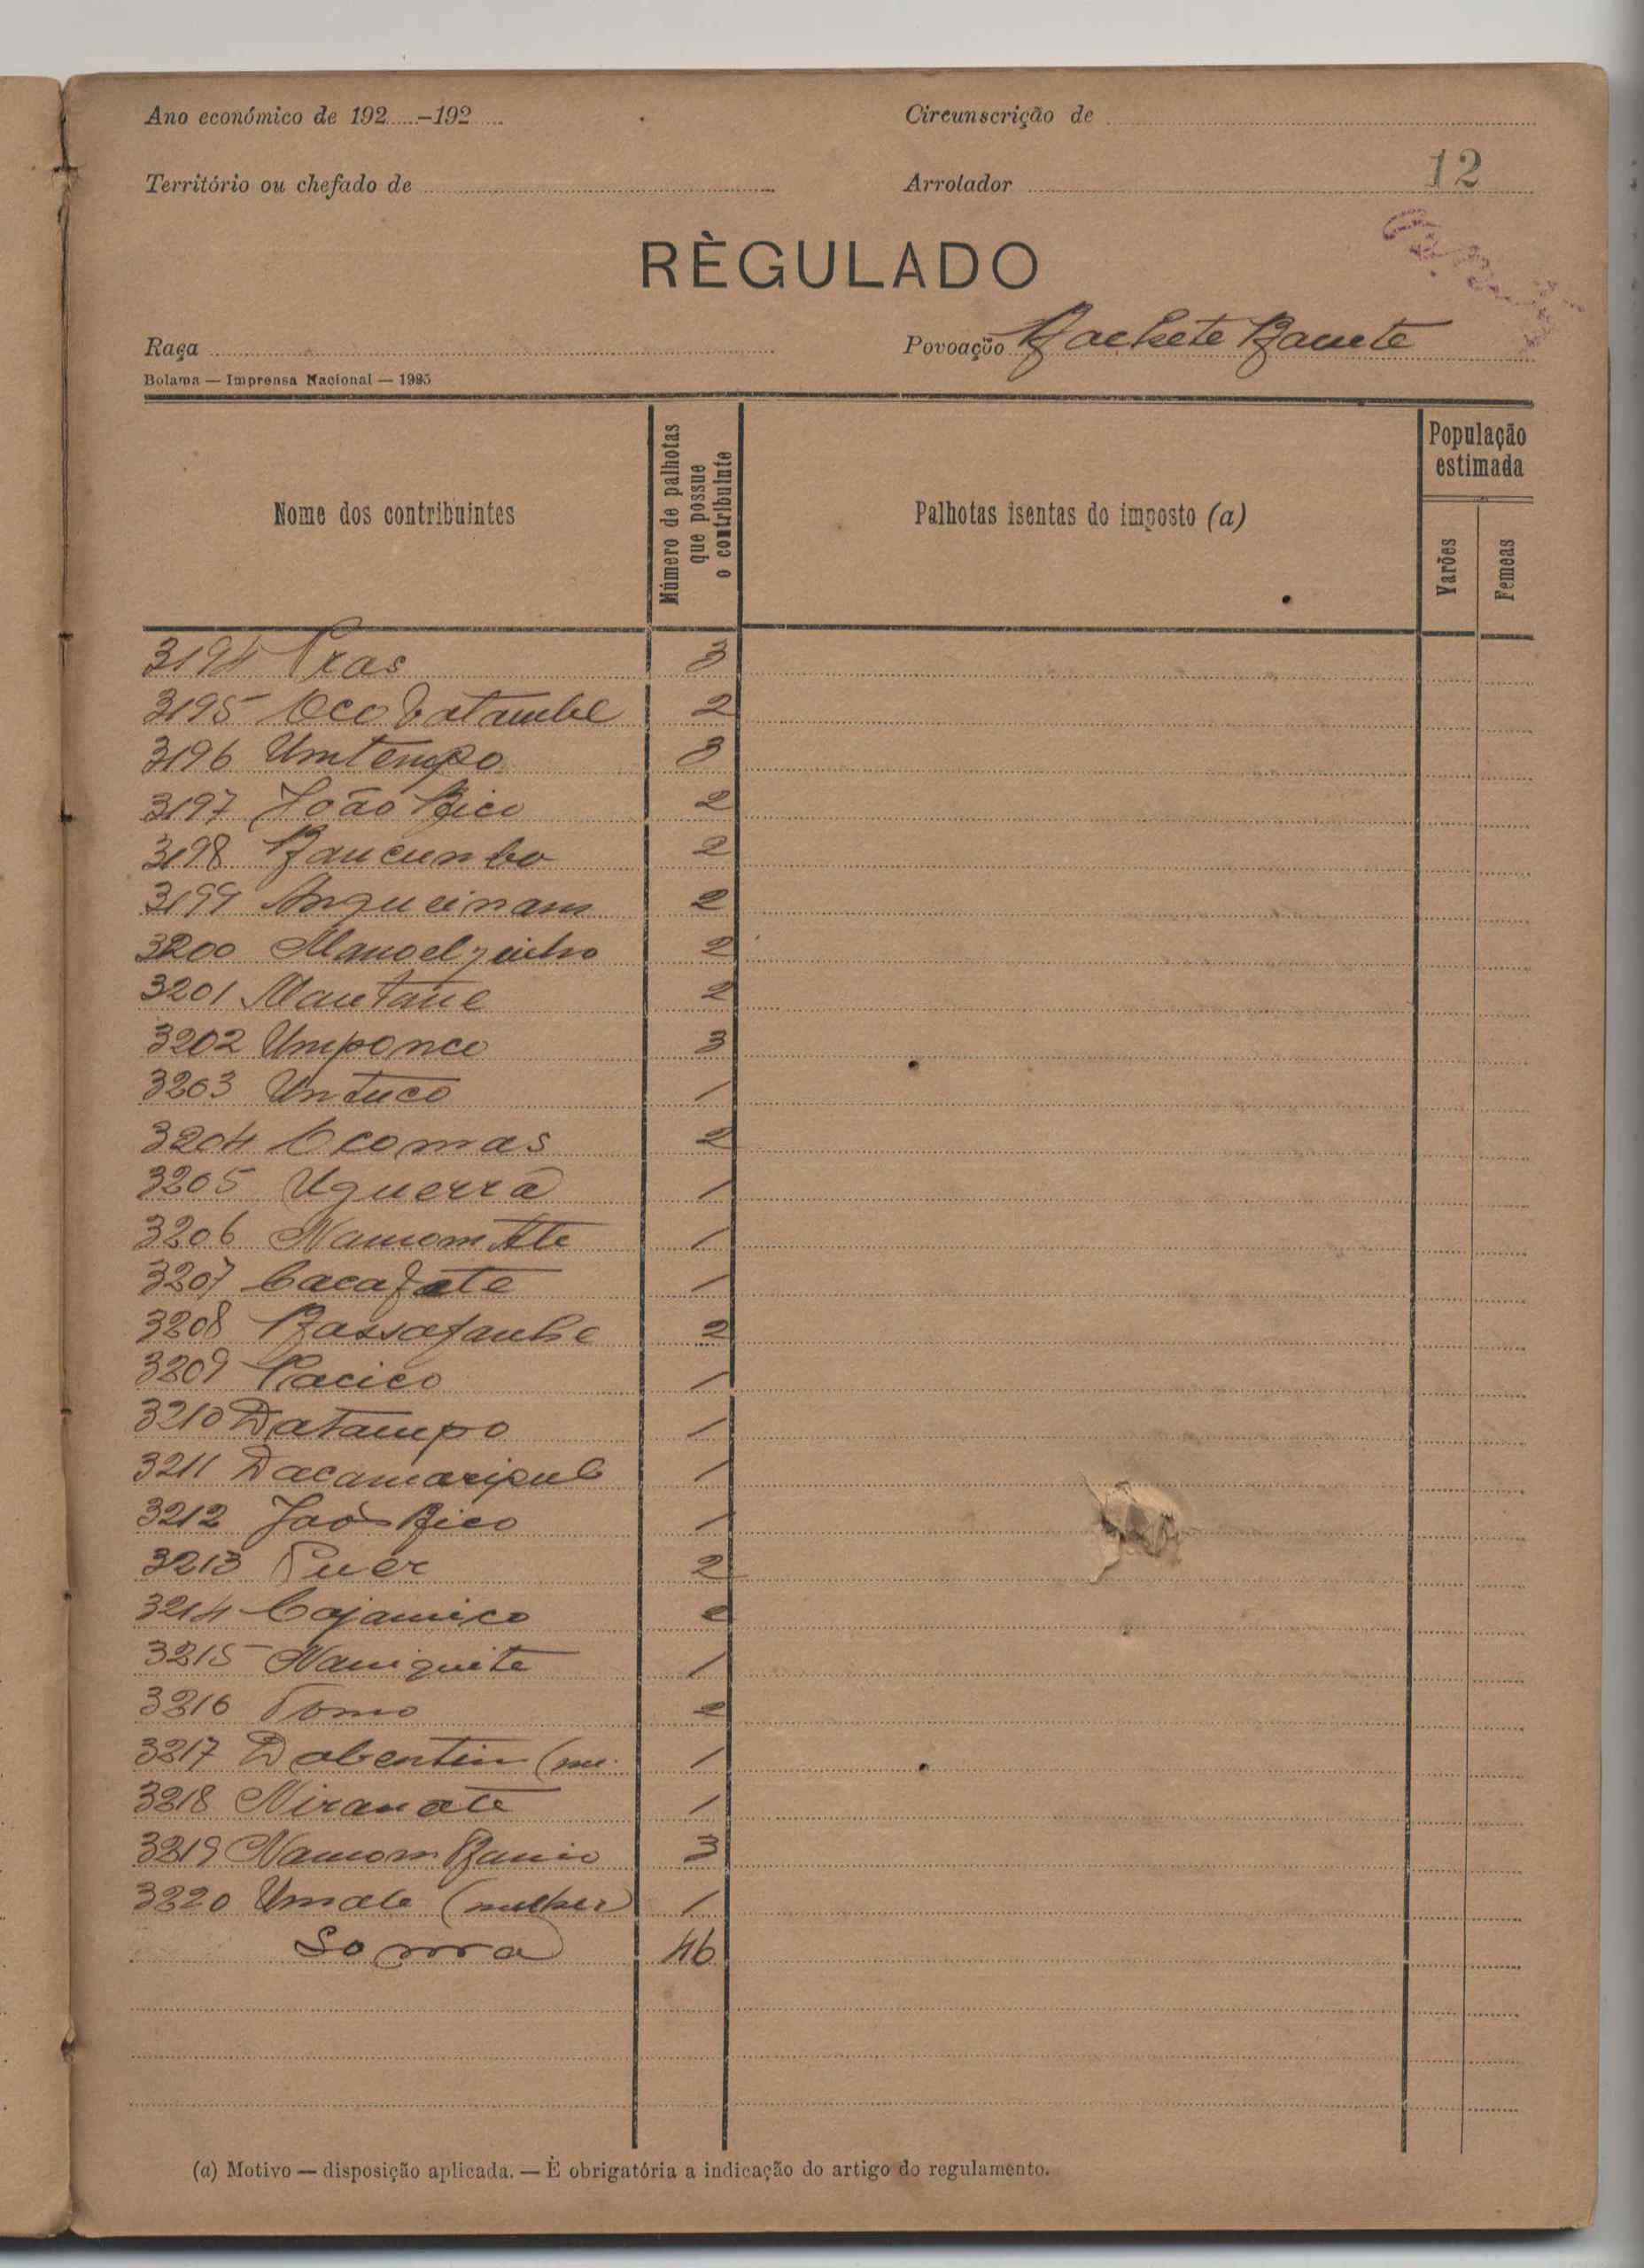 Ano económico de 192.....-192.....
Circunscrição de
Território ou chefado de
Arrolador
12
RÈGULADO
Raça
Povoação Bachete Banete
Bolama — Imprensa Nacional — 1925
Nome dos contribuintes
Número de palhotas que possue o contribuinte
Palhotas isentas do imposto (a)
População estimada
Varões
Femeas
3194 Pras 3
3195 2
3196 Umtempo 3
3197 João Bico 2
3198 Baucumbo 2
3199 2
3200 Manoelzinho 2
3201 Mautane 2
3202 Umponco 3
3203 Untuco 1
3204 Ocomas 2
3205 Uguerra 1
3206 1
3207 1
3208 2
3209 Pacico 1
3210 Datampo 1
3211 1
3212 João Bico 1
3213 Puér 2
3214 Cajamico 2
3215 Naniquite 1
3216 Tomo 2
3217 Dabentim (mu. 1
3218 1
3219 3
3220 Umale (mulher) 1
Soma 46
(a) Motivo — disposição aplicada. — É obrigatória a indicação do artigo do regulamento.